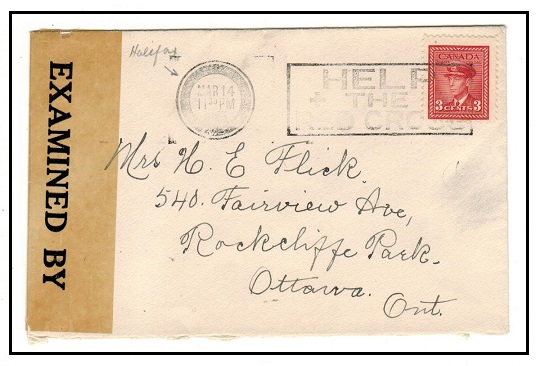 Halifax
EXAMINED BY
MAR 14
PM
HELP
+ THE
RED CROSS
CANADA
3 CENTS 3
Mrs H. E Flick.
540. Fairview Ave,
Rockcliffe Park.
Ottawa.
Ont.